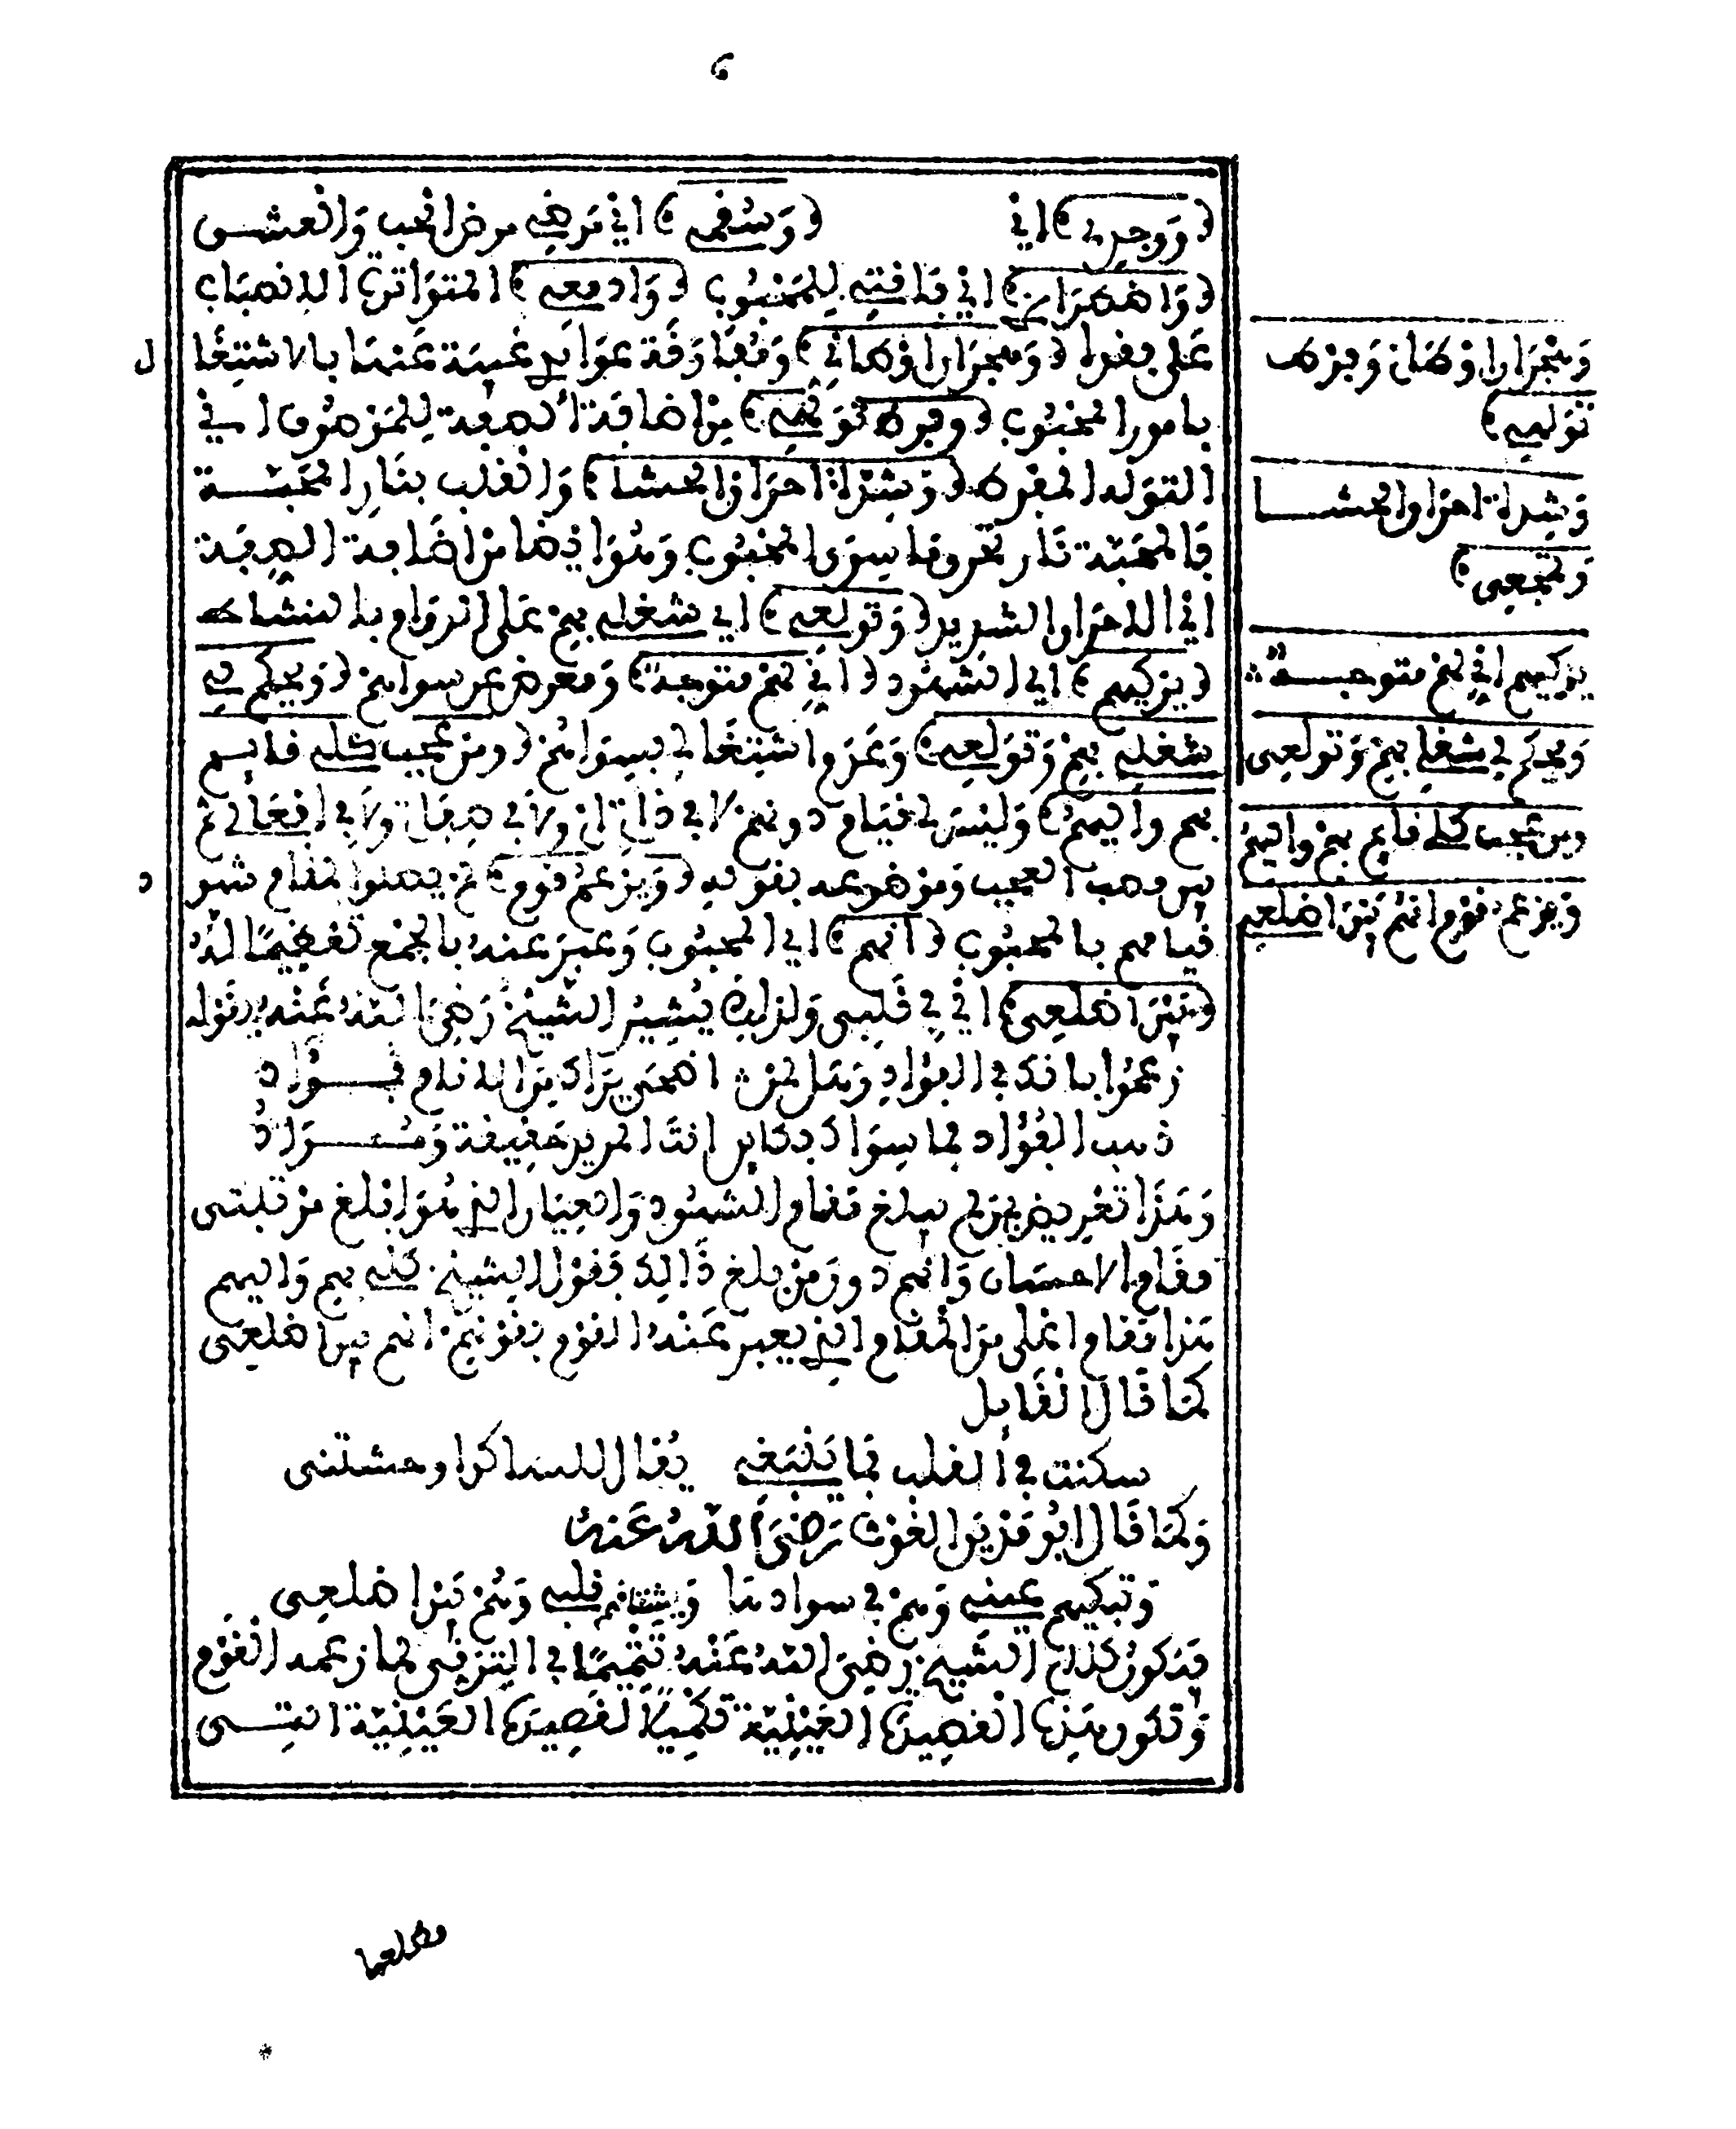 6
(ووجدي) اي (وسقمي) اي مرضي مرض الحب والعشق
(واضطراري) اي فاقتي للمحبوب (وادمعي) المتواترة الانصباب
على بعدها (وهجران اوطاني) ومفارقة عوايدي غيبة عنها بالاشتغال
بامور المحبوب (وفرط تولهي) من اضافة الصفة للموصوف اي
التوله المفرط (وشدة احراق الحشا) والقلب بنار المحبة
فالمحبة نار تحرق ما سوى المحبوب وهو ايضا من اضافة الصفة
اي الاحراق الشديد (وتولعي) اي شغلي بهم على الدوام بالنشاط
(يزكيهم) اي الشهود (اني لهم متوجه) ومعرض عن سواهم (ويحكم في
شغلي بهم وتولعي) وعدم اشتغالي بسواهم (ومن عجب كلي قايم
بهم واليهم) وليس لي قيام دونهم لا في ذاتي ولا في صفاتي ولا في افعالي ثم
بين وصف العجب ومن هو عنه بقوله (ويزعم قوم) لم يصلوا لمقام شهود
قيامهم بالمحبوب (انهم) اي المحبوب وعبر عنه بالجمع تعظيما له
(بين اضلعي) اي في قلبي ولذلك يشير الشيخ رضي الله عنه بقوله
زعموا بانك في الفؤاد وهل لمن اضحى يراك من الانام فؤاد
ذهب الفؤاد فما سواك بدكابل انت المريد حقيقة ومراد
وهذا تعريض بمن لم يبلغ مقام الشهود والعيان الذي هو ابلغ من قلبتي
مقام الاحسان وانهم دون من بلغ ذالك فقول الشيخ كلي بهم واليهم
هذا مقام اعلى من المقام الذي يعبر عنه القوم بقولهم انهم بين اضلعي
كما قال القايل
سكنت في القلب فما ينبغي يقال للساكن اوحشتني
وكما قال ابو مدين الغوث رضي الله عنه
وتبكيهم عيني وهم في سوادها ويشتاقهم قلبي وهم بين اضلعي
فيكون كلام الشيخ رضي الله عنه تتميما في الترقي لما زعمه القوم
وتكون هذه القصيدة العينية تكميلا لقصيدة العينية التي
وهجران اوطان وفرط
تولهي)
وشدة احراق الحشا
وتحفعي)
يزكيهم اني لهم متوجه
ويحكم في شغلي بهم وتولعي
ومن عجب كلي قايم بهم واليهم
ويزعم قوم انهم بين اضلعي
مطلعها